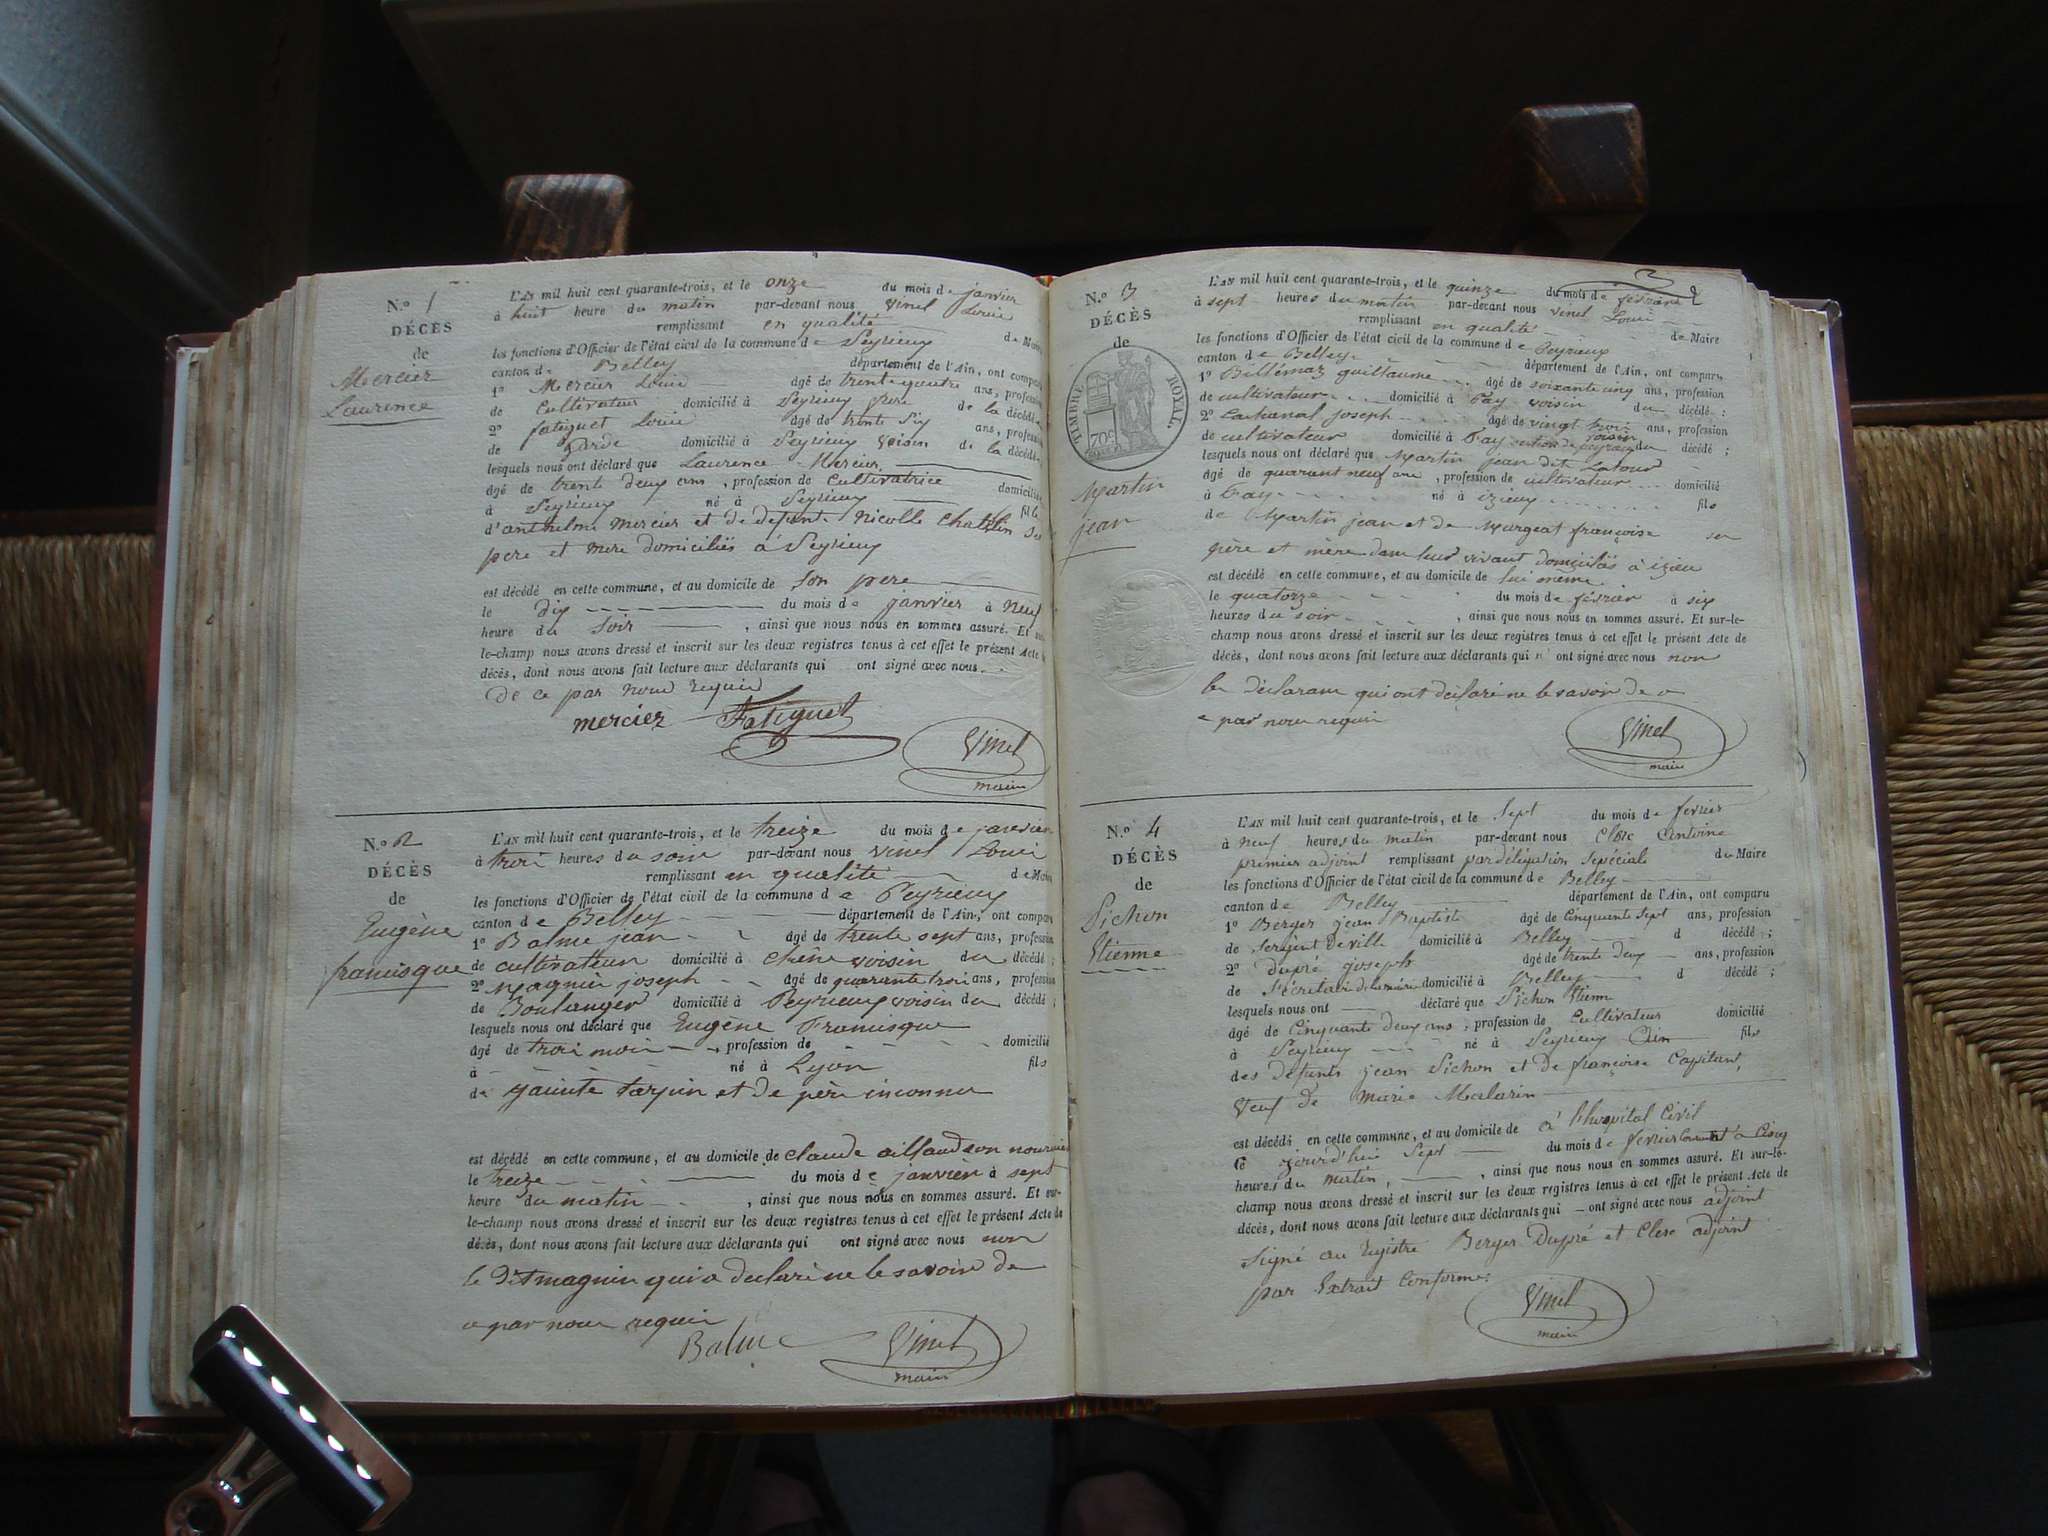 N.o 1
DÉCÈS
de
Mercier
Laurence
L'AN mil huit cent quarante-trois, et le onze du mois de janvier
à huit heure du matin par-devant nous Vinel Louis
remplissant en qualité de Maire
les fonctions d'Officier de l'état civil de la commune de Peyrieux
canton de Belley département de l'Ain, ont comparu
1o Mercier Louis âgé de trente quatre ans, profession
de Cultivateur domicilié à Peyrieux frère de la décédée
2o fatiguet Louis âgé de trente six ans, profession
de Garde domicilié à Peyrieux voisin de la décédée
lesquels nous ont déclaré que Laurence Mercier
âgé de trente deux ans, profession de Cultivatrice domicilié
à Peyrieux né à Peyrieux fille
d'anthelme mercier et de défunte Nicolle Chatelin ses
pere et mere domiciliés à Peyrieux
est décédé en cette commune, et au domicile de son pere
le dix du mois de janvier à neuf
heure du soir, ainsi que nous nous en sommes assuré. Et sur-
le-champ nous avons dressé et inscrit sur les deux registres tenus à cet effet le présent Acte de
décès, dont nous avons fait lecture aux déclarants qui ont signé avec nous
de ce par nous requis
mercier Fatiguet
Vinel
maire
N.o 2
DÉCÈS
de
Eugène
framisque
L'AN mil huit cent quarante-trois, et le treize du mois de janvier
à trois heures du soir par-devant nous Vinel Louis
remplissant en qualité de Maire
les fonctions d'Officier de l'état civil de la commune de Peyrieux
canton de Belley département de l'Ain, ont comparu
1o Balme jean âgé de trente sept ans, profession
de cultivateur domicilié à Chêne voisin du décédé ;
2o Magnin joseph âgé de quarante trois ans, profession
de Boulanger domicilié à Peyrieux voisin du décédé ;
lesquels nous ont déclaré que Eugène Framisque
âgé de trois mois, profession de domicilié
à né à Lyon fils
de jacinte tarpin et de père inconnu
est décédé en cette commune, et au domicile de claude aillaud son nourricier
le treize du mois de janvier à sept
heure du matin, ainsi que nous nous en sommes assuré. Et sur-
le-champ nous avons dressé et inscrit sur les deux registres tenus à cet effet le présent Acte de
décès, dont nous avons fait lecture aux déclarants qui ont signé avec nous non
le dit magnin qui a déclaré ne le savoir de
ce par nous requis
Balme Vinel
maire
2
N.o 3
DÉCÈS
de
TIMBRE ROYAL.
70c
Martin
jean
L'AN mil huit cent quarante-trois, et le quinze du mois de février
à sept heures du matin par-devant nous Vinel Louis
remplissant en qualité de Maire
les fonctions d'Officier de l'état civil de la commune de Peyrieux
canton de Belley département de l'Ain, ont comparu
1o Billémaz guillaume âgé de soixante cinq ans, profession
de cultivateur domicilié à Fay voisin du décédé ;
2o Lachanal joseph âgé de vingt trois ans, profession
de cultivateur domicilié à Fay section de peyrieux voisin du décédé ;
lesquels nous ont déclaré que Martin jean dit Latour
âgé de quarante neuf ans, profession de cultivateur domicilié
à Fay né à izieux fils
de Martin jean et de Murgeat françoise ses
père et mère dans leur vivant domiciliés à izieu
est décédé en cette commune, et au domicile de lui même
le quatorze du mois de février à six
heures du soir, ainsi que nous nous en sommes assuré. Et sur-le-
champ nous avons dressé et inscrit sur les deux registres tenus à cet effet le présent Acte de
décès, dont nous avons fait lecture aux déclarants qui n'ont signé avec nous non
les déclarans qui ont déclaré ne le savoir de
ce par nous requis
Vinel
maire
N.o 4
DÉCÈS
de
Pichon
Etienne
L'AN mil huit cent quarante-trois, et le Sept du mois de fevrier
à neuf heures du matin par-devant nous Clerc Antoine
premier adjoint remplissant par délégation Spéciale du Maire
les fonctions d'Officier de l'état civil de la commune de Belley
canton de Belley département de l'Ain, ont comparu
1o Berger jean Baptiste âgé de Cinquante Sept ans, profession
de Sergent de ville domicilié à Belley d décédé ;
2o Dupré joseph âgé de trente Deux ans, profession
de Sécrétaire de la mairie domicilié à Belley d décédé ;
lesquels nous ont déclaré que Pichon Etienne
âgé de Cinquante deux ans, profession de Cultivateur domicilié
à Peyrieux né à Peyrieux Ain fils
des défunts jean Pichon et de françoise Capitant,
Veuf de Marie Malarin
est décédé en cette commune, et au domicile de à l'hopital Civil
le ajourd'hui Sept du mois de fevrier Courant à Cinq
heures du matin, ainsi que nous nous en sommes assuré. Et sur-le-
champ nous avons dressé et inscrit sur les deux registres tenus à cet effet le présent Acte de
décès, dont nous avons fait lecture aux déclarants qui ont signé avec nous adjoint
Signé au Registre Berger Dupré et Clerc adjoint
par Extrait Conforme
Vinel
maire